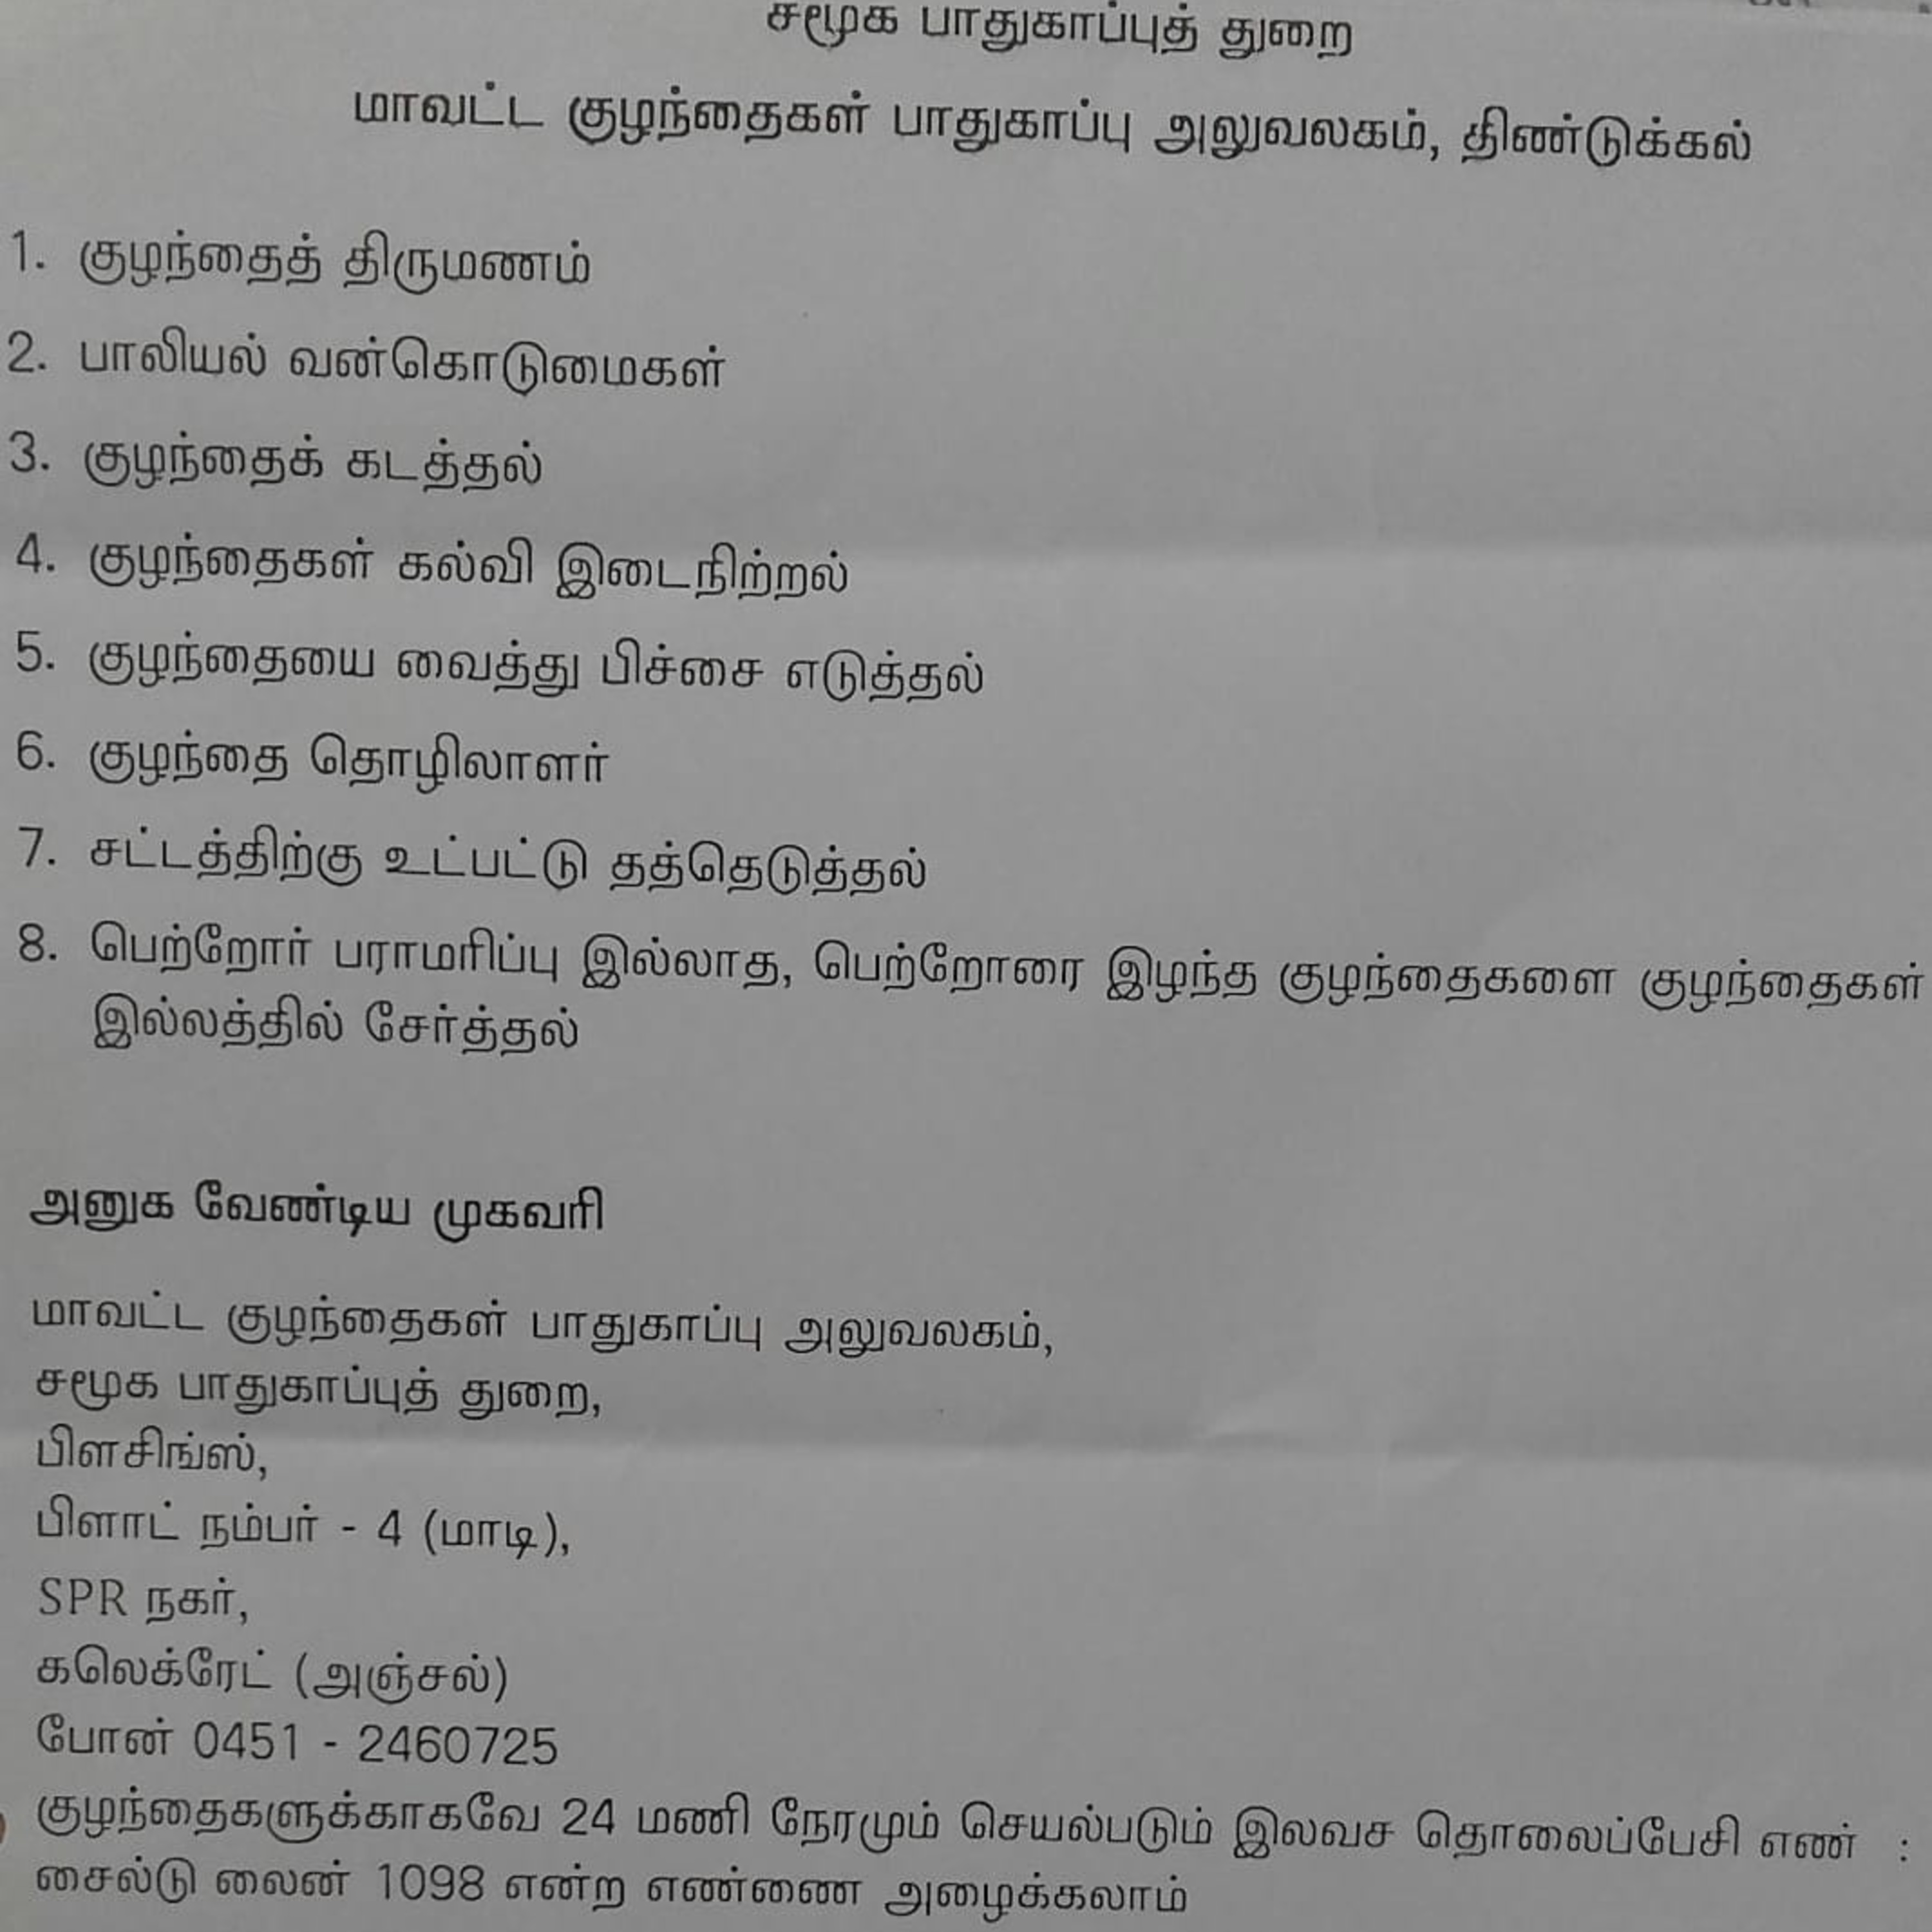 சமூக பாதுகாப்புத் துறை
மாவட்ட குழந்தைகள் பாதுகாப்பு அலுவலகம், திண்டுக்கல்
1. குழந்தைத் திருமணம்
2. பாலியல் வன்கொடுமைகள்
3. குழந்தைக் கடத்தல்
4. குழந்தைகள் கல்வி இடைநிற்றல்
5. குழந்தையை வைத்து பிச்சை எடுத்தல்
6. குழந்தை தொழிலாளர்
7. சட்டத்திற்கு உட்பட்டு தத்தெடுத்தல்
8. பெற்றோர் பராமரிப்பு இல்லாத, பெற்றோரை இழந்த குழந்தைகளை குழந்தைகள்
இல்லத்தில் சேர்த்தல்
அனுக வேண்டிய முகவரி
மாவட்ட குழந்தைகள் பாதுகாப்பு அலுவலகம்,
சமூக பாதுகாப்புத் துறை,
பிளசிங்ஸ்,
பிளாட் நம்பர் - 4 (மாடி),
SPR நகர்,
கலெக்ரேட் (அஞ்சல்)
போன் 0451 - 2460725
குழந்தைகளுக்காகவே 24 மணி நேரமும் செயல்படும் இலவச தொலைப்பேசி எண் :
சைல்டு லைன் 1098 என்ற எண்ணை அழைக்கலாம்